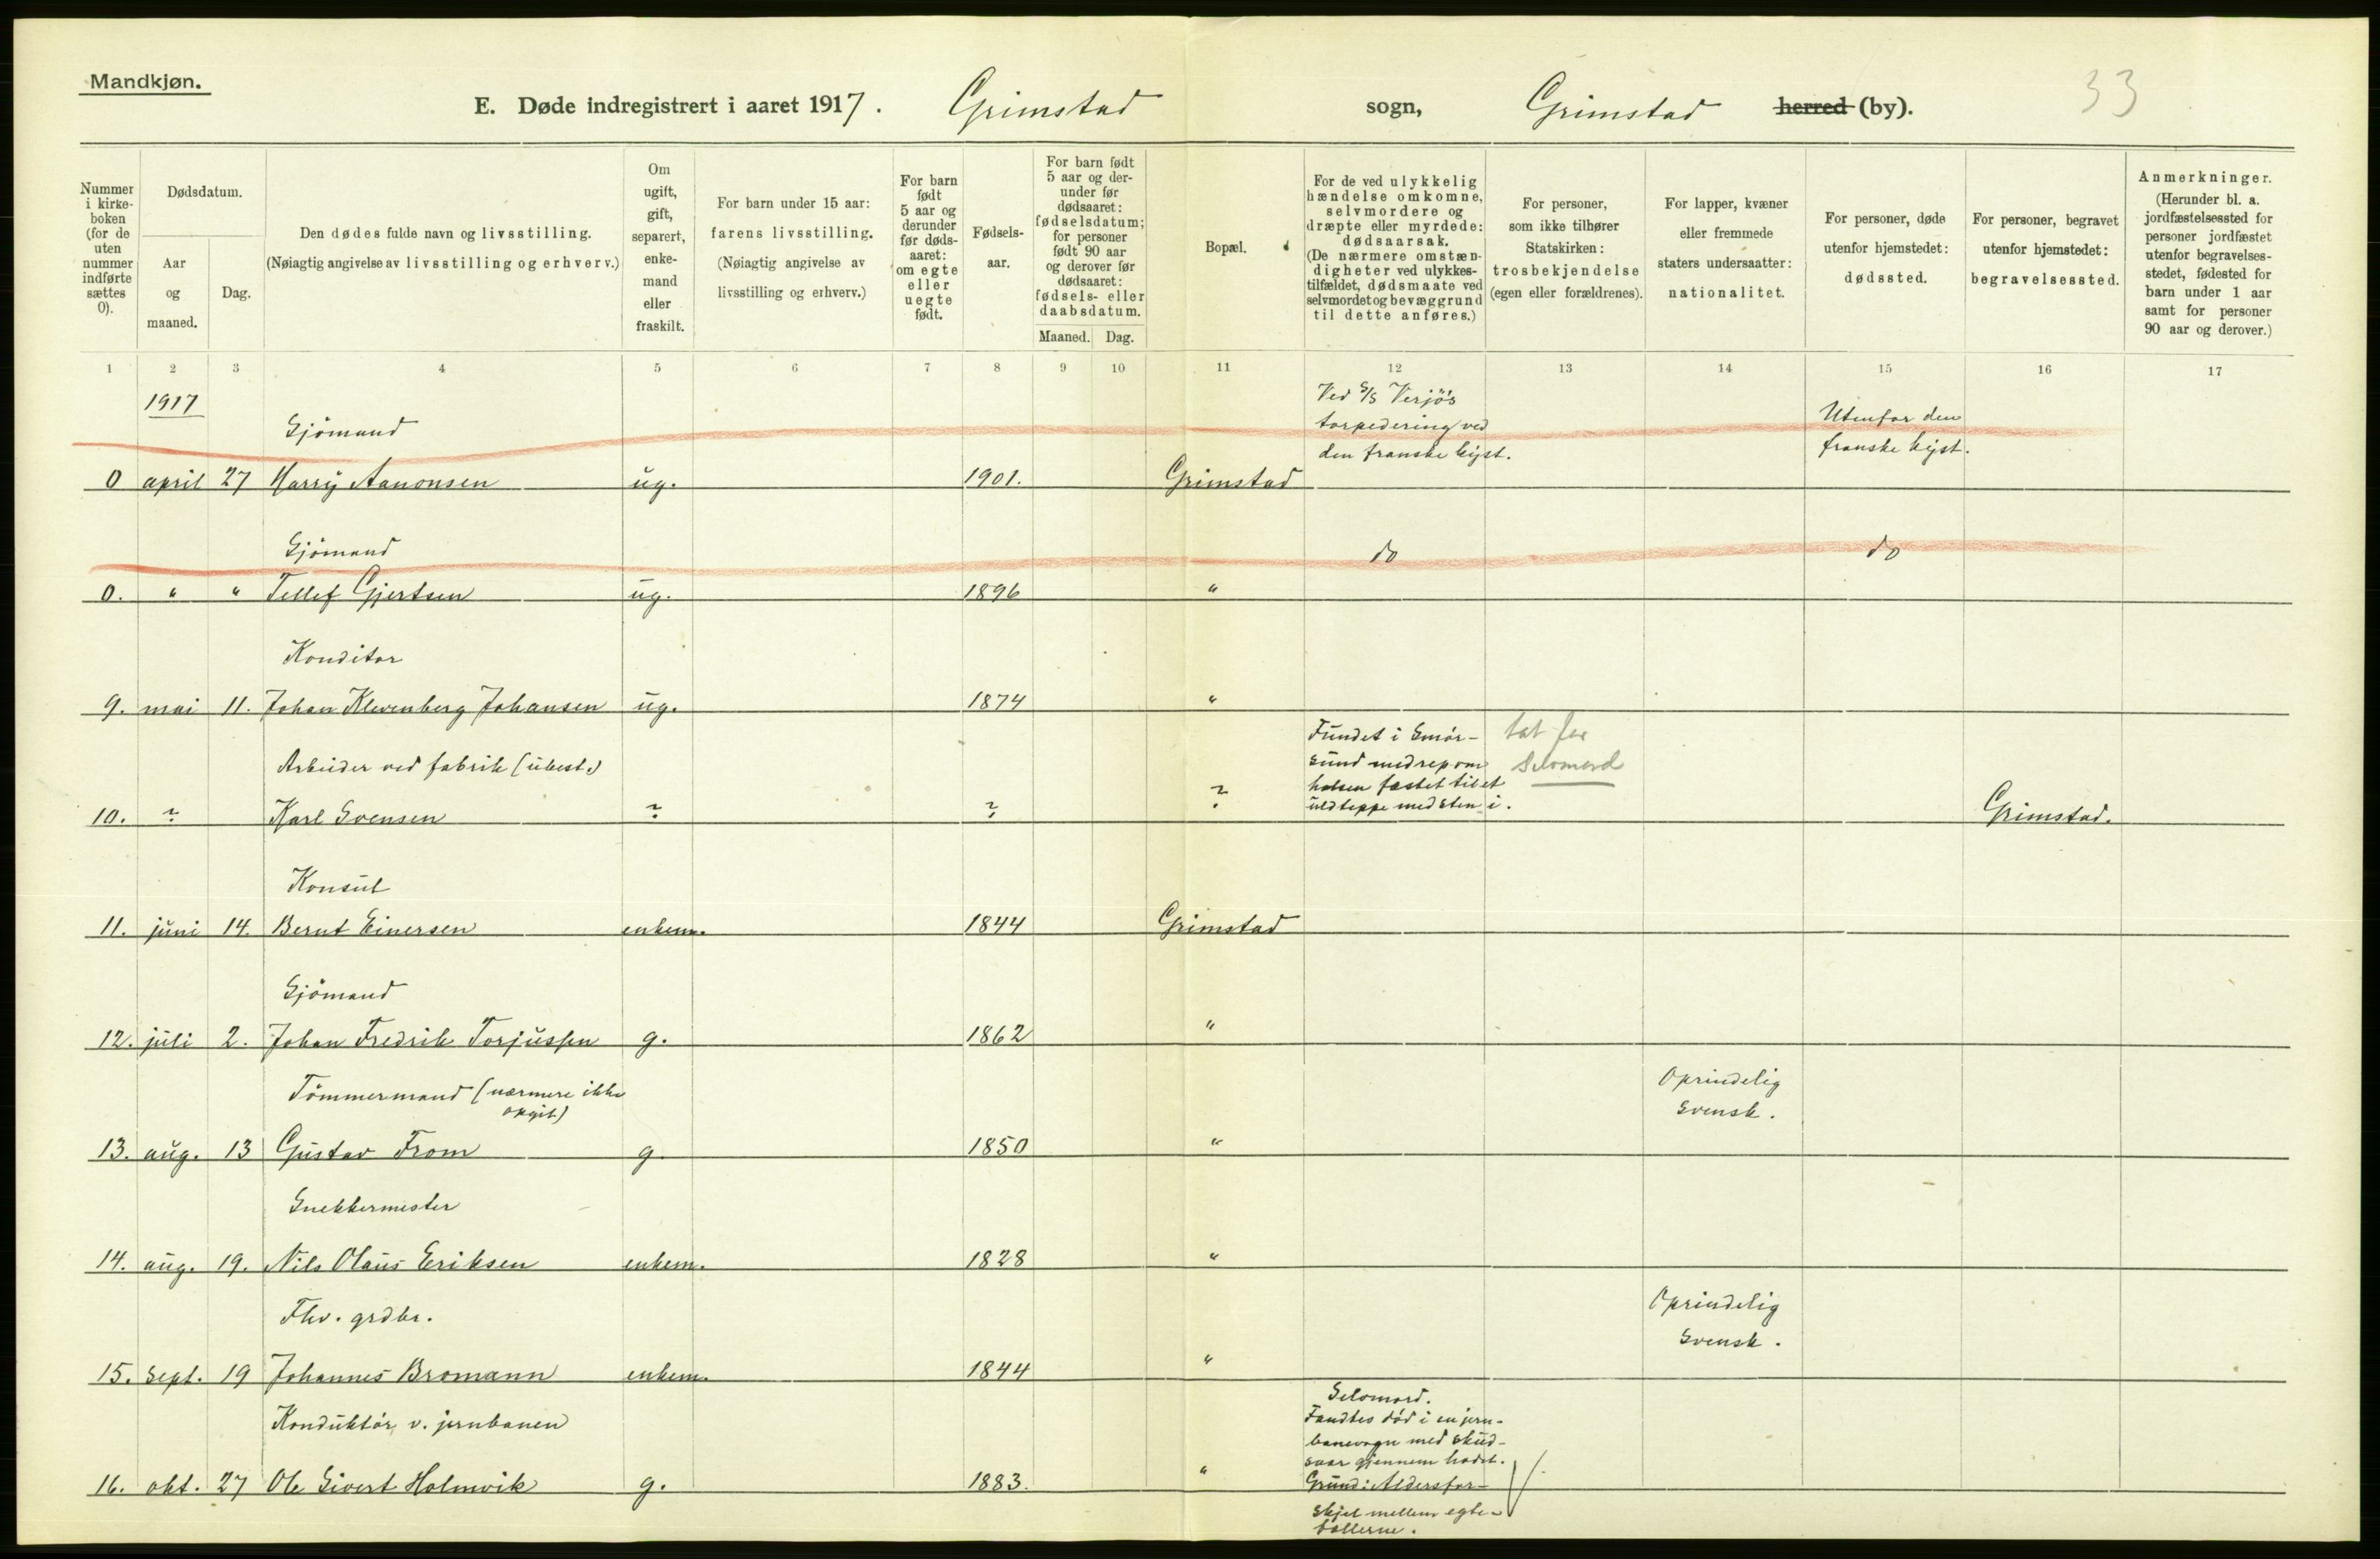 Mandkjøn.
E. Døde indregistrert i aaret 1917. Grimstad sogn, Grimstad herred (by). 33
Nummer i kirke-boken (for de uten nummer indførte sættes 0).
Dødsdatum.
Aar og maaned.
Dag.
Den dødes fulde navn og livsstilling.
(Nøiagtig angivelse av livsstilling og erhverv.)
Om ugift, gift, separert, enke-mand eller fraskilt.
For barn under 15 aar: farens livsstilling.
(Nøiagtig angivelse av livsstilling og erhverv.)
For barn født 5 aar og derunder før døds-aaret: om egte eller uegte født.
Fødsels-aar.
For barn født 5 aar og der-under før dødsaaret: fødselsdatum; for personer født 90 aar og derover før dødsaaret: fødsels- eller daabsdatum.
Maaned. Dag.
Bopæl.
For de ved ulykkelig hændelse omkomne, selvmordere og dræpte eller myrdede: dødsaarsak.
(De nærmere omstæn-digheter ved ulykkes-tilfældet, dødsmaate ved selvmordet og bevæggrund til dette anføres.)
For personer, som ikke tilhører Statskirken: trosbekjendelse (egen eller forældrenes).
For lapper, kvæner eller fremmede staters undersaatter: nationalitet.
For personer, døde utenfor hjemstedet: dødssted.
For personer, begravet utenfor hjemstedet: begravelsessted.
Anmerkninger.
(Herunder bl. a. jordfæstelsessted for personer jordfæstet utenfor begravelses-stedet, fødested for barn under 1 aar samt for personer 90 aar og derover.)
1 2 3 4 5 6 7 8 9 10 11 12 13 14 15 16 17
1917
Sjömand
Ved S/S Verjö's
torpedering ved
den franske kyst.
Utenfor den
franske kyst.
0 april 27 Harry Aanonsen ug. 1901. Grimstad
Sjömand do do
0. " " Tellef Gjertsen ug. 1896 "
Konditor
9. mai 11. Johan Klevenberg Johansen ug. 1874 "
Arbeider ved fabrik (ubest.)
Fundet i Smör-
sund med rep om
halsen fæstet til et
uldteppe med sten i.
tat for
Selvmord
10. ? Karl Svensen ? ? ? Grimstad.
Konsul
11. juni 14. Bernt Einersen enkem. 1844 Grimstad
Sjömand
12. juli 2. Johan Fredrik Torjussen g. 1862 "
Tömmermand (nærmere ikke
opgit)
Oprindelig
svensk.
13. aug. 13 Gustav From g 1850 "
Snekkermester
14. aug. 19. Nils Olaus Eriksen enkem. 1828 "
Fhv. grdbr.
Oprindelig
svensk.
15. sept. 19 Johannes Bromann enkem. 1844 "
Konduktör v. jernbanen
Selvmord.
Fandtes död i en jern-
banevogn med skud-
saar gjennem hodet.
Grund: Aldersfor-
skjel mellem egte-
fællerne.
16. okt. 27 Ole Sivert Holmvik g. 1883. "